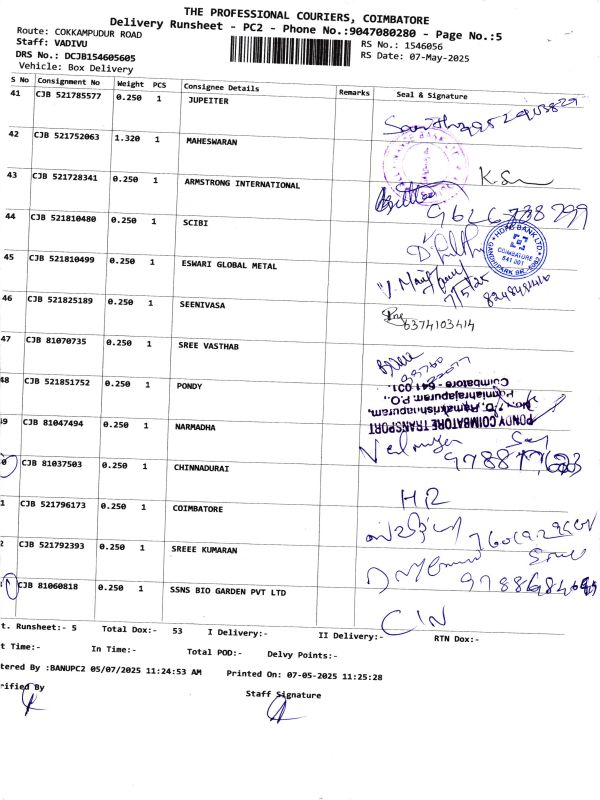 THE PROFESSIONAL COURIERS, COIMBATORE
Delivery Runsheet - PC2 - Phone No.:9047080280 - Page No.:5
Route: COKKAMPUDUR ROAD
Staff: VADIVU
RS No.: 1546056
DRS No.: DCJB154605605
RS Date: 07-May-2025
Vehicle: Box Delivery
S No Consignment No Weight PCS Consignee Details Remarks Seal & Signature
41 CJB 521785577 0.250 1 JUPEITER
42 CJB 521752063 1.320 1 MAHESWARAN
43 CJB 521728341 0.250 1 ARMSTRONG INTERNATIONAL
K.S
44 CJB 521810480 0.250 1 SCIBI
9626738299
HDFC BANK LTD
COIMBATORE
641 001
45 CJB 521810499 0.250 1 ESWARI GLOBAL METAL
7/5/25
46 CJB 521825189 0.250 1 SEENIVASA
6374103414
47 CJB 81070735 0.250 1 SREE VASTHAB
48 CJB 521851752 0.250 1 PONDY
PONDY COIMBATORE TRANSPORT
Coimbatore - 641 001.
49 CJB 81047494 0.250 1 NARMADHA
0 CJB 81037503 0.250 1 CHINNADURAI
HR
1 CJB 521796173 0.250 1 COIMBATORE
2 CJB 521792393 0.250 1 SREEE KUMARAN
CJB 81060818 0.250 1 SSNS BIO GARDEN PVT LTD
t. Runsheet:- 5 Total Dox:- 53 I Delivery:- II Delivery:- RTN Dox:-
t Time:- In Time:- Total POD:- Delvy Points:-
tered By :BANUPC2 05/07/2025 11:24:53 AM Printed On: 07-05-2025 11:25:28
rified By Staff Signature